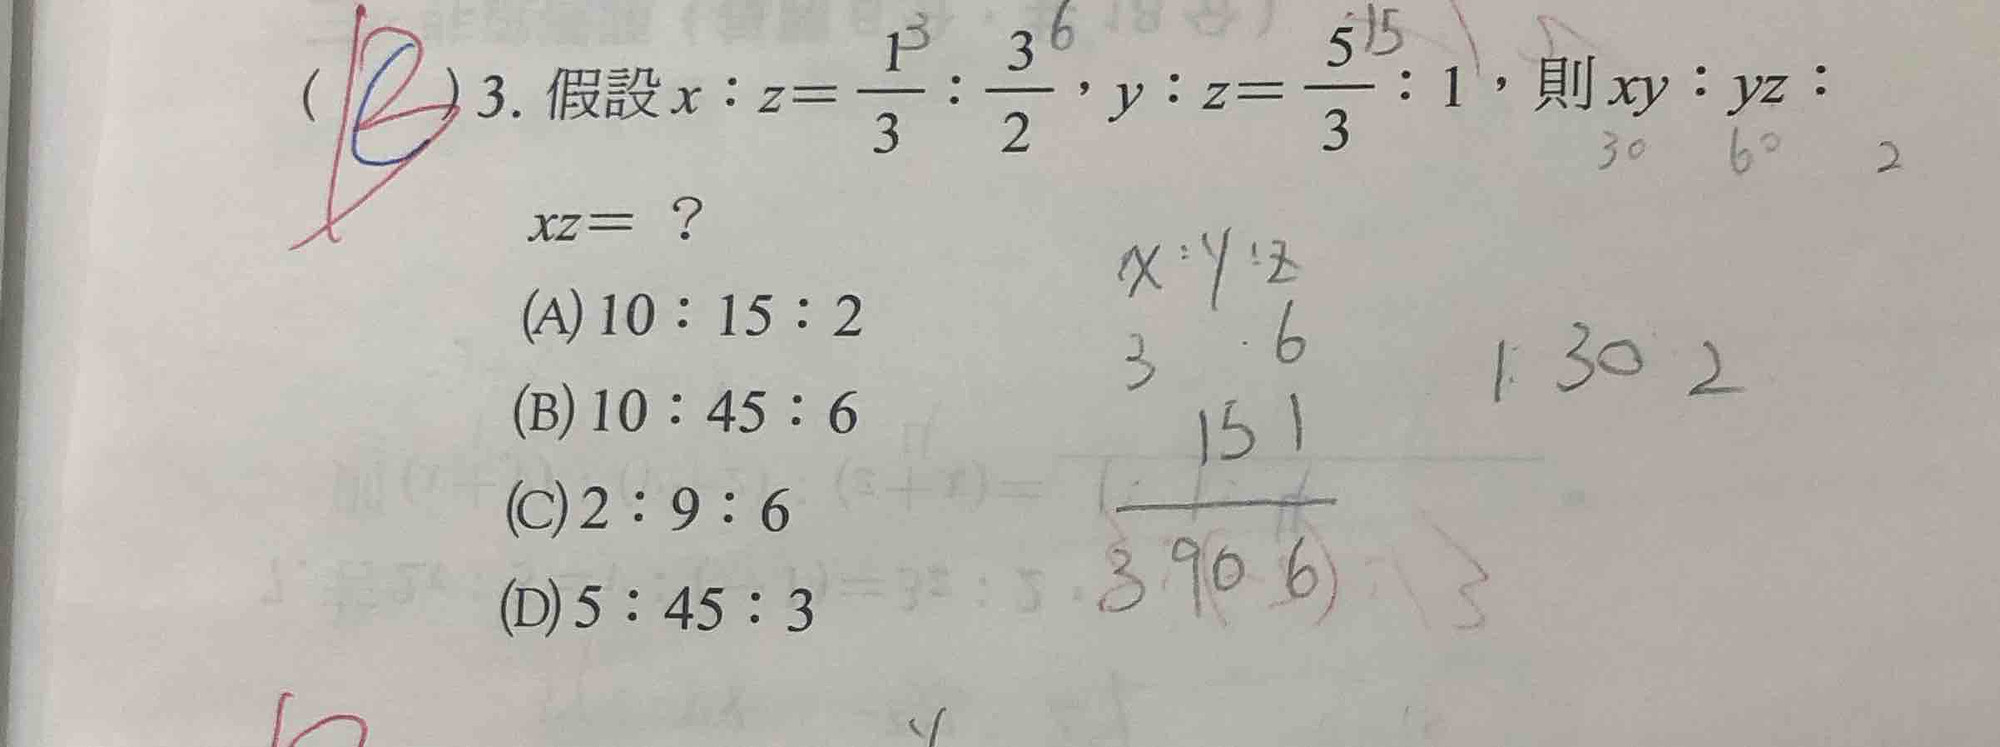 ( B ) 3. 假設 x：z＝1/3：3/2，y：z＝5/3：1，則 xy：yz：
3 6 15
30 60 2
xz＝？
(A) 10：15：2
(B) 10：45：6
(C) 2：9：6
(D) 5：45：3
x : y : z
3 6
15 1
3 90 6
1: 30 2